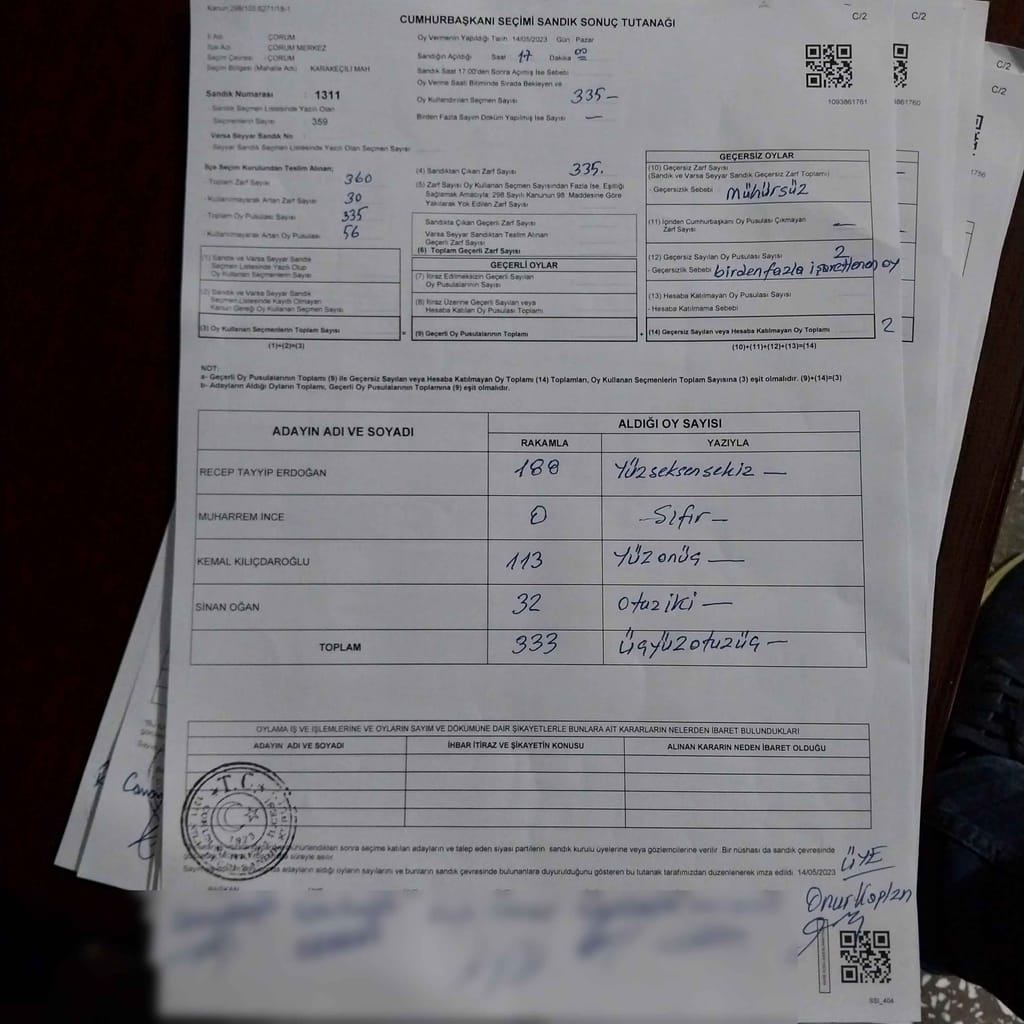 Kanun 298/105.6271/18-1
C/2
C/2
C/2
C/2
CUMHURBAŞKANI SEÇİMİ SANDIK SONUÇ TUTANAĞI
İl Adı : ÇORUM
İlçe Adı : ÇORUM MERKEZ
Seçim Çevresi : ÇORUM
Seçim Bölgesi (Mahalle Adı) : KARAKEÇİLİ MAH
Sandık Numarası : 1311
Sandık Seçmen Listesinde Yazılı Olan
Seçmenlerin Sayısı : 359
Varsa Seyyar Sandık No :
Seyyar Sandık Seçmen Listesinde Yazılı Olan Seçmen Sayısı :
Oy Vermenin Yapıldığı Tarih 14/05/2023 Gün : Pazar
Sandığın Açıldığı Saat 17 Dakika 00
Sandık Saat 17:00'den Sonra Açılmış İse Sebebi
Oy Verme Saati Bitiminde Sırada Bekleyen ve
Oy Kullandırılan Seçmen Sayısı 335 -
Birden Fazla Sayım Döküm Yapılmış İse Sayısı —
1093861761
1093861760
İlçe Seçim Kurulundan Teslim Alınan;
Toplam Zarf Sayısı 360
Kullanılmayarak Artan Zarf Sayısı 30
Toplam Oy Pusulası Sayısı 335
Kullanılmayarak Artan Oy Pusulası 56
(1) Sandık ve Varsa Seyyar Sandık
Seçmen Listesinde Yazılı Olup
Oy Kullanan Seçmenlerin Sayısı
(2) Sandık ve Varsa Seyyar Sandık
Seçmen Listesinde Kaydı Olmayan
Kanun Gereği Oy Kullanan Seçmenlerin Sayısı
(3) Oy Kullanan Seçmenlerin Toplam Sayısı
(1)+(2)=(3)
(4) Sandıktan Çıkan Zarf Sayısı 335.
(5) Zarf Sayısı Oy Kullanan Seçmen Sayısından Fazla İse, Eşitliği
Sağlamak Amacıyla; 298 Sayılı Kanunun 98. Maddesine Göre
Yakılarak Yok Edilen Zarf Sayısı
Sandıkta Çıkan Geçerli Zarf Sayısı
Varsa Seyyar Sandıktan Teslim Alınan
Geçerli Zarf Sayısı
(6) Toplam Geçerli Zarf Sayısı
GEÇERLİ OYLAR
(7) İtiraz Edilmeksizin Geçerli Sayılan
Oy Pusulalarının Sayısı
(8) İtiraz Üzerine Geçerli Sayılan veya
Hesaba Katılan Oy Pusulası Toplamı
= (9) Geçerli Oy Pusulalarının Toplamı
GEÇERSİZ OYLAR
(10) Geçersiz Zarf Sayısı
(Sandık ve Varsa Seyyar Sandık Geçersiz Zarf Toplamı)
- Geçersizlik Sebebi mühürsüz
(11) İçinden Cumhurbaşkanı Oy Pusulası Çıkmayan
Zarf Sayısı —
(12) Geçersiz Sayılan Oy Pusulası Sayısı 2
- Geçersizlik Sebebi birden fazla işaretlenen oy
(13) Hesaba Katılmayan Oy Pusulası Sayısı
- Hesaba Katılmama Sebebi
+ (14) Geçersiz Sayılan veya Hesaba Katılmayan Oy Toplamı 2
(10)+(11)+(12)+(13)=(14)
NOT:
a- Geçerli Oy Pusulalarının Toplamı (9) ile Geçersiz Sayılan veya Hesaba Katılmayan Oy Toplamı (14) Toplamları, Oy Kullanan Seçmenlerin Toplam Sayısına (3) eşit olmalıdır. (9)+(14)=(3)
b- Adayların Aldığı Oyların Toplamı, Geçerli Oy Pusulalarının Toplamına (9) eşit olmalıdır.
ADAYIN ADI VE SOYADI ALDIĞI OY SAYISI
RAKAMLA YAZIYLA
RECEP TAYYİP ERDOĞAN 188 Yüzseksensekiz —
MUHARREM İNCE 0 - Sıfır -
KEMAL KILIÇDAROĞLU 113 Yüzonüç —
SİNAN OĞAN 32 Otuziki —
TOPLAM 333 Üçyüzotuzüç —
OYLAMA İŞ VE İŞLEMLERİNE VE OYLARIN SAYIM VE DÖKÜMÜNE DAİR ŞİKAYETLERLE BUNLARA AİT KARARLARIN NELERDEN İBARET BULUNDUKLARI
ADAYIN ADI VE SOYADI İHBAR İTİRAZ VE ŞİKAYETİN KONUSU ALINAN KARARIN NEDEN İBARET OLDUĞU
T.C.
1923
sonra seçime katılan adayların ve talep eden siyasi partilerin sandık kurulu üyelerine veya gözlemcilerine verilir. Bir nüshası da sandık çevresinde
süreyle asılır.
adayların aldığı oyların sayılarını ve bunların sandık çevresinde bulunanlara duyurulduğunu gösteren bu tutanak tarafımızdan düzenlenerek imza edildi. 14/05/2023
ÜYE
Onur Kaplan
SSI_404